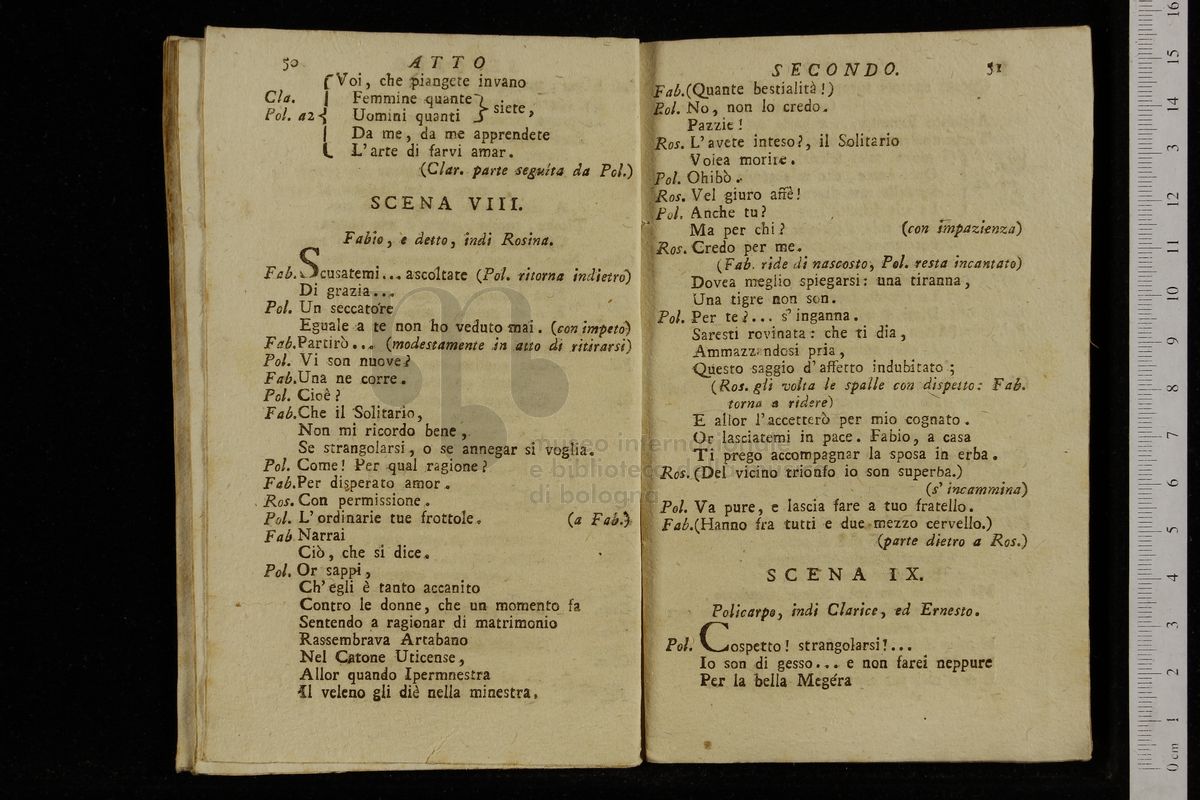 50 ATTO
Voi, che piangete invano
Cla. Femmine quante
Pol. a2 Uomini quanti siete,
Da me, da me apprendete
L'arte di farvi amar.
(Clar. parte seguita da Pol.)
SCENA VIII.
Fabio, e detto, indi Rosina.
Fab. Scusatemi... ascoltate (Pol. ritorna indietro)
Di grazia...
Pol. Un seccatore
Eguale a te non ho veduto mai. (con impeto)
Fab. Partirò... (modestamente in atto di ritirarsi)
Pol. Vi son nuove?
Fab. Una ne corre.
Pol. Cioè?
Fab. Che il Solitario,
Non mi ricordo bene,
Se strangolarsi, o se annegar si voglia.
Pol. Come! Per qual ragione?
Fab. Per disperato amor.
Ros. Con permissione.
Pol. L'ordinarie tue frottole. (a Fab.)
Fab Narrai
Ciò, che si dice.
Pol. Or sappi,
Ch'egli è tanto accanito
Contro le donne, che un momento fa
Sentendo a ragionar di matrimonio
Rassembrava Artabano
Nel Catone Uticense,
Allor quando Ipermnestra
Il veleno gli diè nella minestra.
SECONDO. 51
Fab. (Quante bestialità!)
Pol. No, non lo credo.
Pazzie!
Ros. L'avete inteso?, il Solitario
Volea morire.
Pol. Ohibò.
Ros. Vel giuro affè!
Pol. Anche tu?
Ma per chi? (con impazienza)
Ros. Credo per me.
(Fab. ride di nascosto, Pol. resta incantato)
Dovea meglio spiegarsi: una tiranna,
Una tigre non son.
Pol. Per te?... s'inganna.
Saresti rovinata: che ti dia,
Ammazzandosi pria,
Questo saggio d'affetto indubitato;
(Ros. gli volta le spalle con dispetto: Fab.
torna a ridere)
E allor l'accetterò per mio cognato.
Or lasciatemi in pace. Fabio, a casa
Ti prego accompagnar la sposa in erba.
Ros. (Del vicino trionfo io son superba.)
(s'incammina)
Pol. Va pure, e lascia fare a tuo fratello.
Fab. (Hanno fra tutti e due mezzo cervello.)
(parte dietro a Ros.)
SCENA IX.
Policarpo, indi Clarice, ed Ernesto.
Pol. Cospetto! strangolarsi!...
Io son di gesso... e non farei neppure
Per la bella Megéra
museo internazionale
e biblioteca della musica
di bologna
0 cm 1 2 3 4 5 6 7 8 9 10 11 12 13 14 15 16